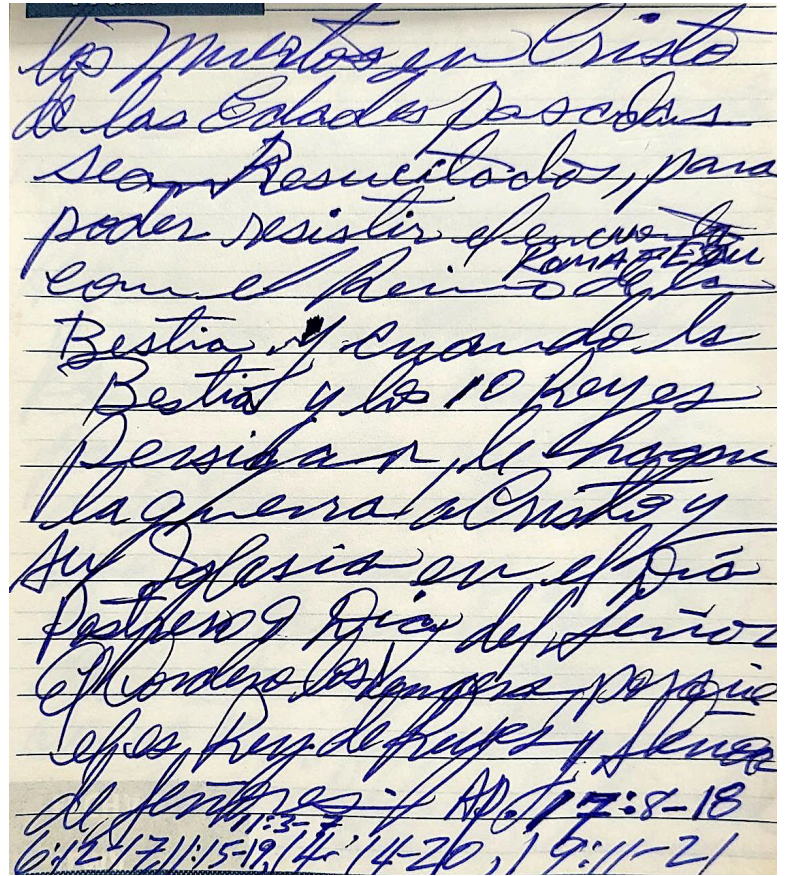 los Muertos en Cristo
de las Edades pasadas
sean Resucitados, para
poder resistir el encuentro
ROMA
con el Reino de la
Bestia y cuando la
Bestia y los 10 Reyes
Persigan, le hagan
la guerra a Cristo y
su Iglesia en el Día
Postrero o Día del Señor
El Cordero los vencera porque
el es Rey de Reyes y Señor
de Señores - Ap. 17:8-18
11:3-7
6:12-17, 11:15-19, 14:14-20, 19:11-21